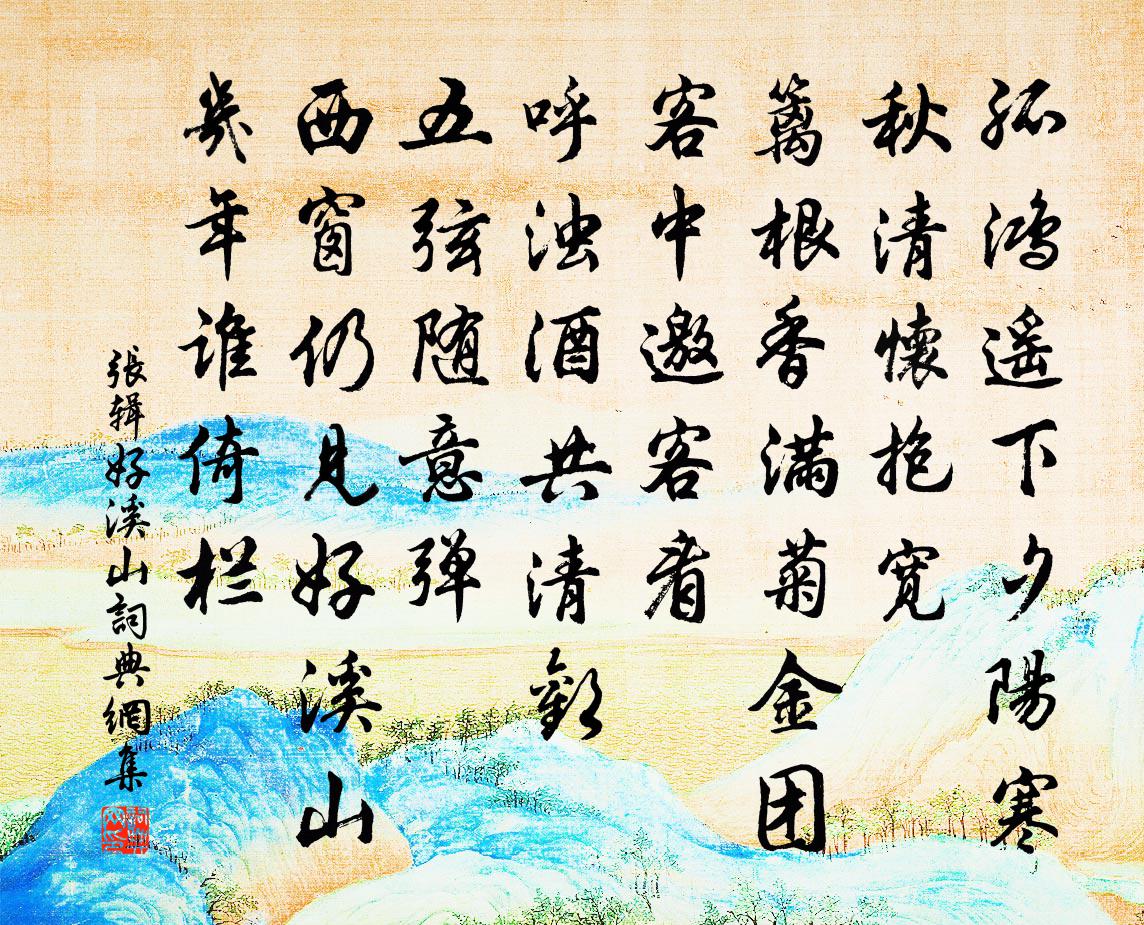 孤鸿遥下夕陽寒
秋清懷抱寛
篱根香满菊金团
客中邀客看
呼浊酒共清歡
五弦随意弹
西窗仍見好溪山
幾年誰倚栏
張辑好溪山詞典網集